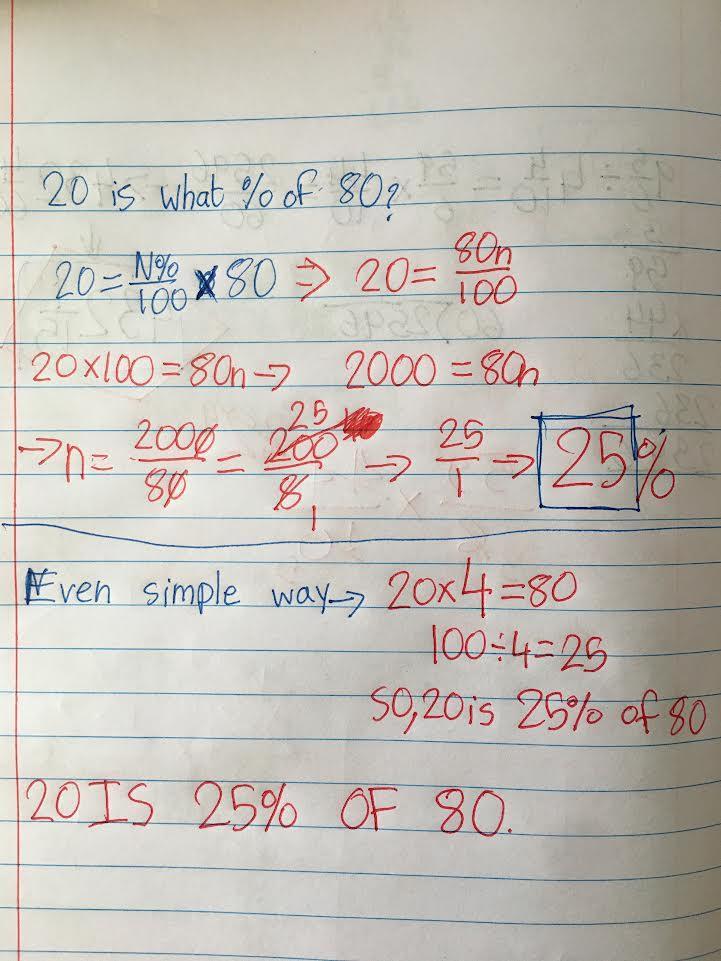 20 is what % of 80?
20 = N%/100 × 80 ⇒ 20 = 80n/100
20×100 = 80n → 2000 = 80n
→ n = 2000/80 = 200/8 25/1 → 25/1 → 25%
Even simple way → 20×4=80
100÷4=25
SO, 20 is 25% of 80
20 IS 25% OF 80.